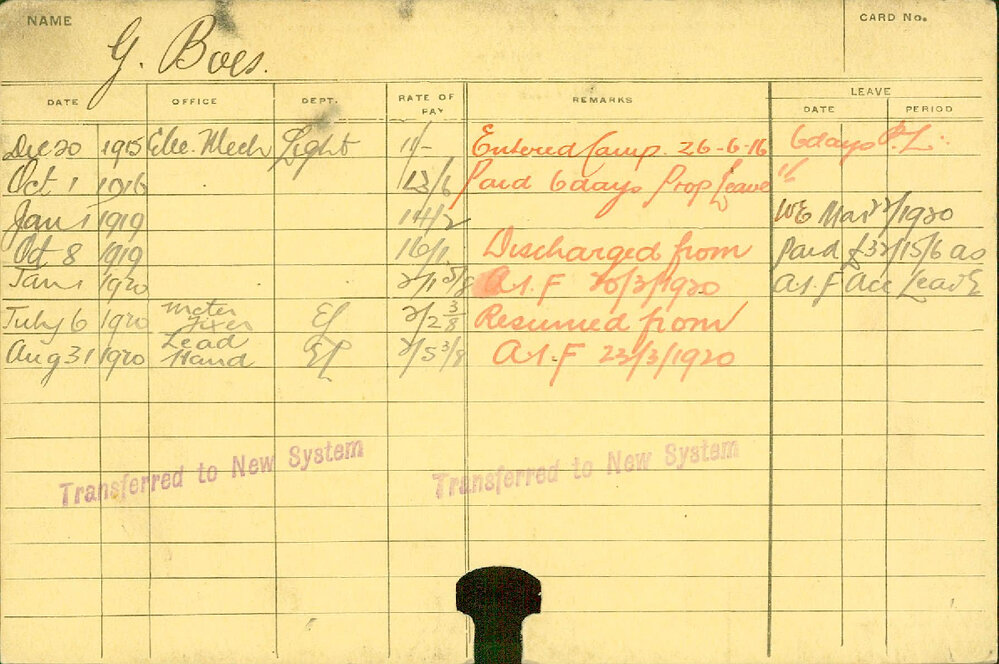 NAME
G. Boes.
CARD No.
DATE OFFICE DEPT. RATE OF PAY REMARKS LEAVE
DATE PERIOD
Dec 20 1915 Elec. Mech Light 11/- Entered Camp. 26-6-16 6 days P.L.
Oct 1 1916 13/6 Paid 6 days Prop Leave "
Jan 1 1919 14/2 WE Mar 27/1920
Oct 8 1919 16/1 Discharged from Paid £32/15/6 as
Jan 1 1920 2/1 5/8 A.I.F 20/3/1920 A.I.F Acc Leave
July 6 1920 Meter Fixer El 2/2 3/8 Resumed from
Aug 31 1920 Lead Hand El 2/5 3/8 A.I.F 22/3/1920
Transferred to New System Transferred to New System